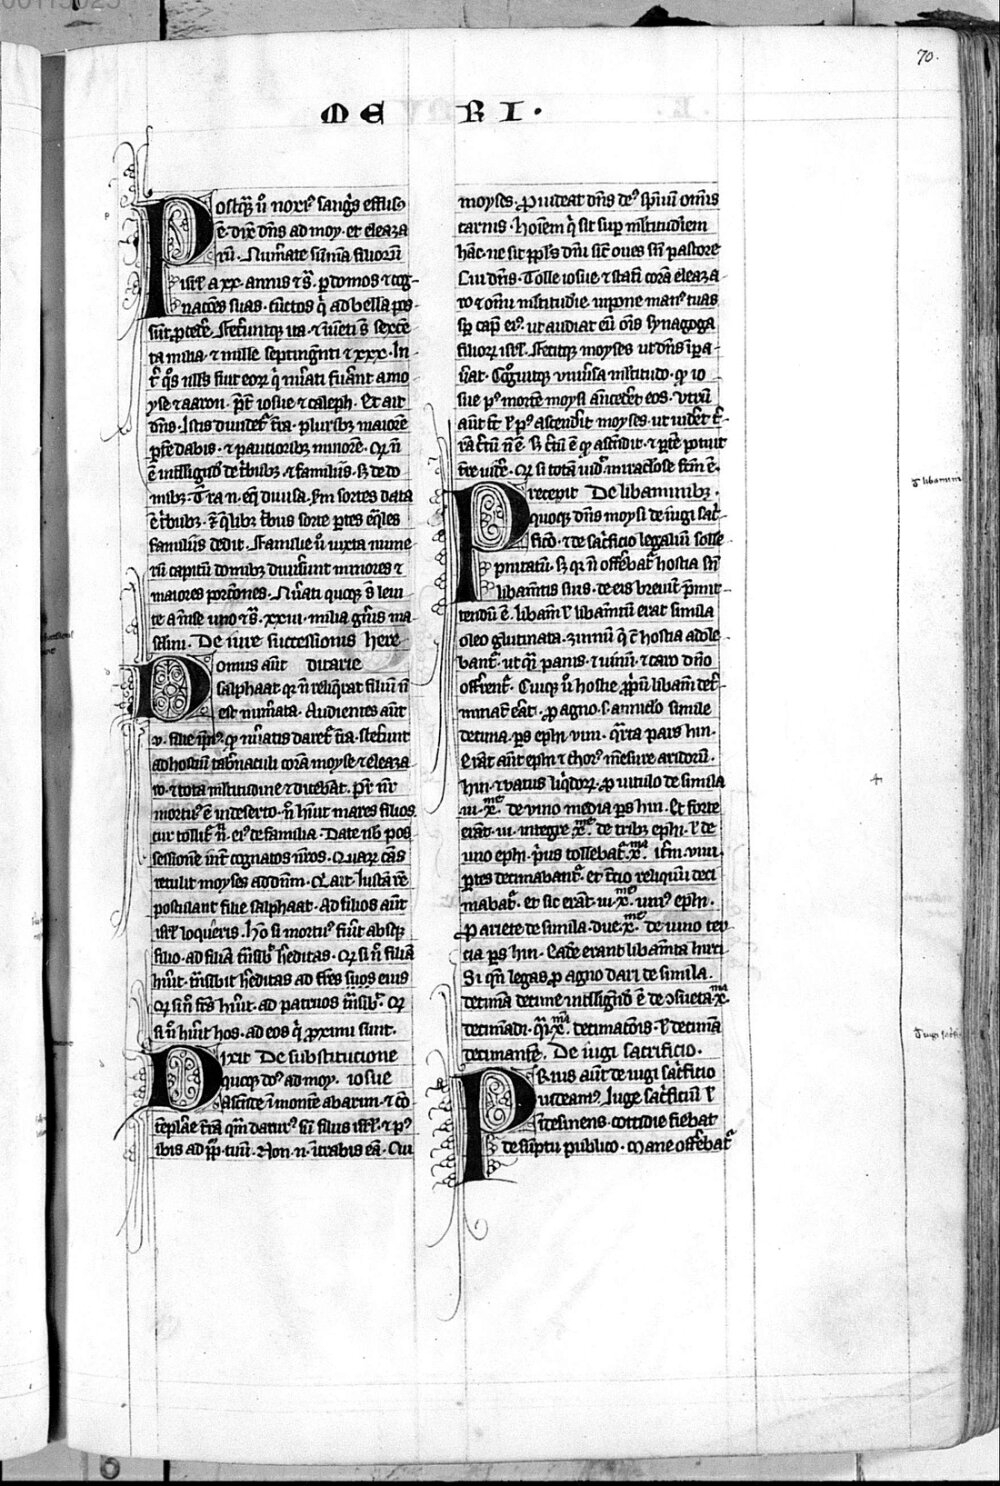 70.
ME RI.
Postq̃ꝫ ũ noxiꝰ sanguis effusꝰ
ẽ. dix̃ dñs ad moy. et eleaza
rũ. Numerate sũmã filiorũ
isrl̃ a xx. annis ⁊ s̃. ꝑ domos ⁊ cog-
nac̃oes suas. cũctos q̃ ad bella pos
sũt ꝓcedẽ. Feceruntqꝫ ita. ⁊ inuẽti s̃ sexcẽ
ta milia. ⁊ mille septingenti ⁊ xxx. In
yse ⁊ aaron. p̃t iosue ⁊ caleph. Et ait
dñs. Istis diuidet̃ t̃ra. pluribꝫ maiorẽ
ꝑtẽ dabis. ⁊ paucioribꝫ minorẽ. Qr̃ ñ
ẽ intelligẽd̃ de t̃bubꝫ. ⁊ familiis. sꝫ de do
mibꝫ. T̃ra n. eq̃ diuisa. s̃m sortes data
ẽ t̃bubꝫ. ⁊ q̃libꝫ t̃bus sorte ꝑtes eq̃les
familiis dedit. Familie ũ iuxta nume
rũ capitũ domibꝫ diuiserunt minores ⁊
maiores porc̃ones. Nũati quoqꝫ s̃ leui
te a mẽse uno ⁊ s̃. xxiii. milia gñis ma
sclini. De iure successionis here
Domus aũt ditarie
salphaat qr̃ ñ reliq̃rat filiũ ñ
est num̃ata. Audientes aũt
.v. filie ip̃iꝰ. ꝙ nũatis daret̃ t̃ra. stet̃unt
ad hostiũ tab̃naculi corã moyse ⁊ eleaza
ro ⁊ tota ml̃titudine ⁊ dicebãt. P̃r nr̃
mortuꝰ ẽ in deserto. ñ hũit mares filios.
cur tollit̃ ñ. eiꝰ de familia. Date nob̃ pos
sessionẽ int̃ cognatos nr̃os. Quaꝝ cãs
retulit moyses ad dñm. Q̃ ait. Iustã rẽ
postulant filie salphaat. Ad filios aũt
isrl̃ loqueris. Hõ si mortuꝰ fũit absqꝫ
filio. ad filiã t̃nsibit h̃editas. Qr̃ si ñ filiã
hũit. t̃nsibit h̃editas ad fr̃es suos eius
Q̃ si ñ fr̃es hũit. ad patruos t̃nsib̃. Q̃
si ñ hũit hos. ad eos q̃ ꝓximi sunt.
Dixit De substitucione
quoqꝫ dñs ad moy. iosue
Ascẽde ĩ montẽ abarim. ⁊ cõ
tẽplare t̃rã quã daturꝰ sũ filiis isrl̃. ⁊ pꝰ
ibis ad pp̃lm tuũ. Non n. ĩtrabis eã. Cui
moyses. Prouideat dñs deꝰ sp̃iuũ om̃is
carnis. hoĩem q̃ sit sup̃ ml̃titudinem
hãc. ne sit pp̃ls dñi sic̃ oues sñ pastore
Cui dñs. Tolle iosue. ⁊ statũ corã eleaza-
ro ⁊ omni ml̃titudie. inpone manꝰ tuas
sꝑ cap̃ eiꝰ. ut audiat eũ om̃s synagoga
filioꝝ isrl̃. Fecitqꝫ moyses ut dñs ip̃a-
ũat. Cognouitqꝫ vniũsa ml̃titudo. ꝙ io
sue pꝰ mortẽ moysi añcederet eos. Vtrũ
aũt st̃ l̃ pꝰ ascendit moyses. ut uidet t̃r-
tẽre uidẽ. Qr̃ si totã uid̃ miraclose s̃cm ẽ.
Precepit De libaminibꝫ.
quoqꝫ dñs moysi de iugi sac̃-
ficio. ⁊ de sac̃ficio legaliũ solle
pnitatũ. sꝫ qr̃ ñ offerebat̃ hostia sñ
libamẽtis suis. de eis breuit̃ p̃mit
tendũ ẽ. libam̃ l̃ libamẽtũ erat simila
oleo glutinata. ⁊ uinũ q̃ c̃ hostia adole-
bant̃. ut q̃si panis. ⁊ uinũ. ⁊ caro dño
offerent̃. Cuiqꝫ ũ hostie ꝓpriũ libam̃ det̃-
minatũ erat. ꝓ agno .s. anniclo simile
decima ꝑs ephi. vini. q̃rta pars hin.
Erãt aũt ephi ⁊ chorꝰ mẽsure aridorũ.
hin ⁊ vatus liq̃dorꝝ. ꝓ uitulo de simila
.iii. x.me de vino media ꝑs hin. Et forte
erãt .iii. integre x.me de tribꝫ ephi. l̃ de
uno ephi. p̃us tollebat̃ x.ma it̃m .viiii.
ꝑtes decimabant̃. et t̃cio reliquũ deci
mabat̃. et sic erãt .iii. x.me uniꝰ ephi.
ꝓ ariete de simila. due x.me de uino ter
cia ꝑs hin. Eadẽ erant libamẽta hirci
Si q̃n legas ꝓ agno dari de simila.
decimã decime intelligẽd̃ ẽ de ↄsueta x.ma
decimãdi. q̃si x.ma decimac̃ois. l̃ decimã
decimante. De iugi sacrificio.
Prius aũt de iugi sac̃ficio
uideamꝰ. Iuge sac̃ficiũ l̃
ĩdesinens. cottidie fiebat
de sũptu publico. Mane offerebat̃